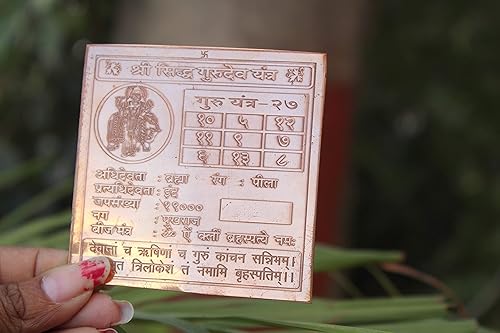 श्री सिद्ध गुरुदेव यंत्र
गुरु यंत्र-२७
१० ५ १२
११ ९ ७
६ १३ ८
अधिदेवता : ब्रह्मा रंग : पीला
प्रत्यधिदेवता : इंद्र
जपसंख्या : १९०००
नग : पुखराज
बीज मंत्र : ॐ ऐं क्लीं बृहस्पत्ये नमः
देवानां च ऋषिणां च गुरु कांचन सन्निभम्।
त्रिलोकेशं तं नमामि बृहस्पतिम्।।